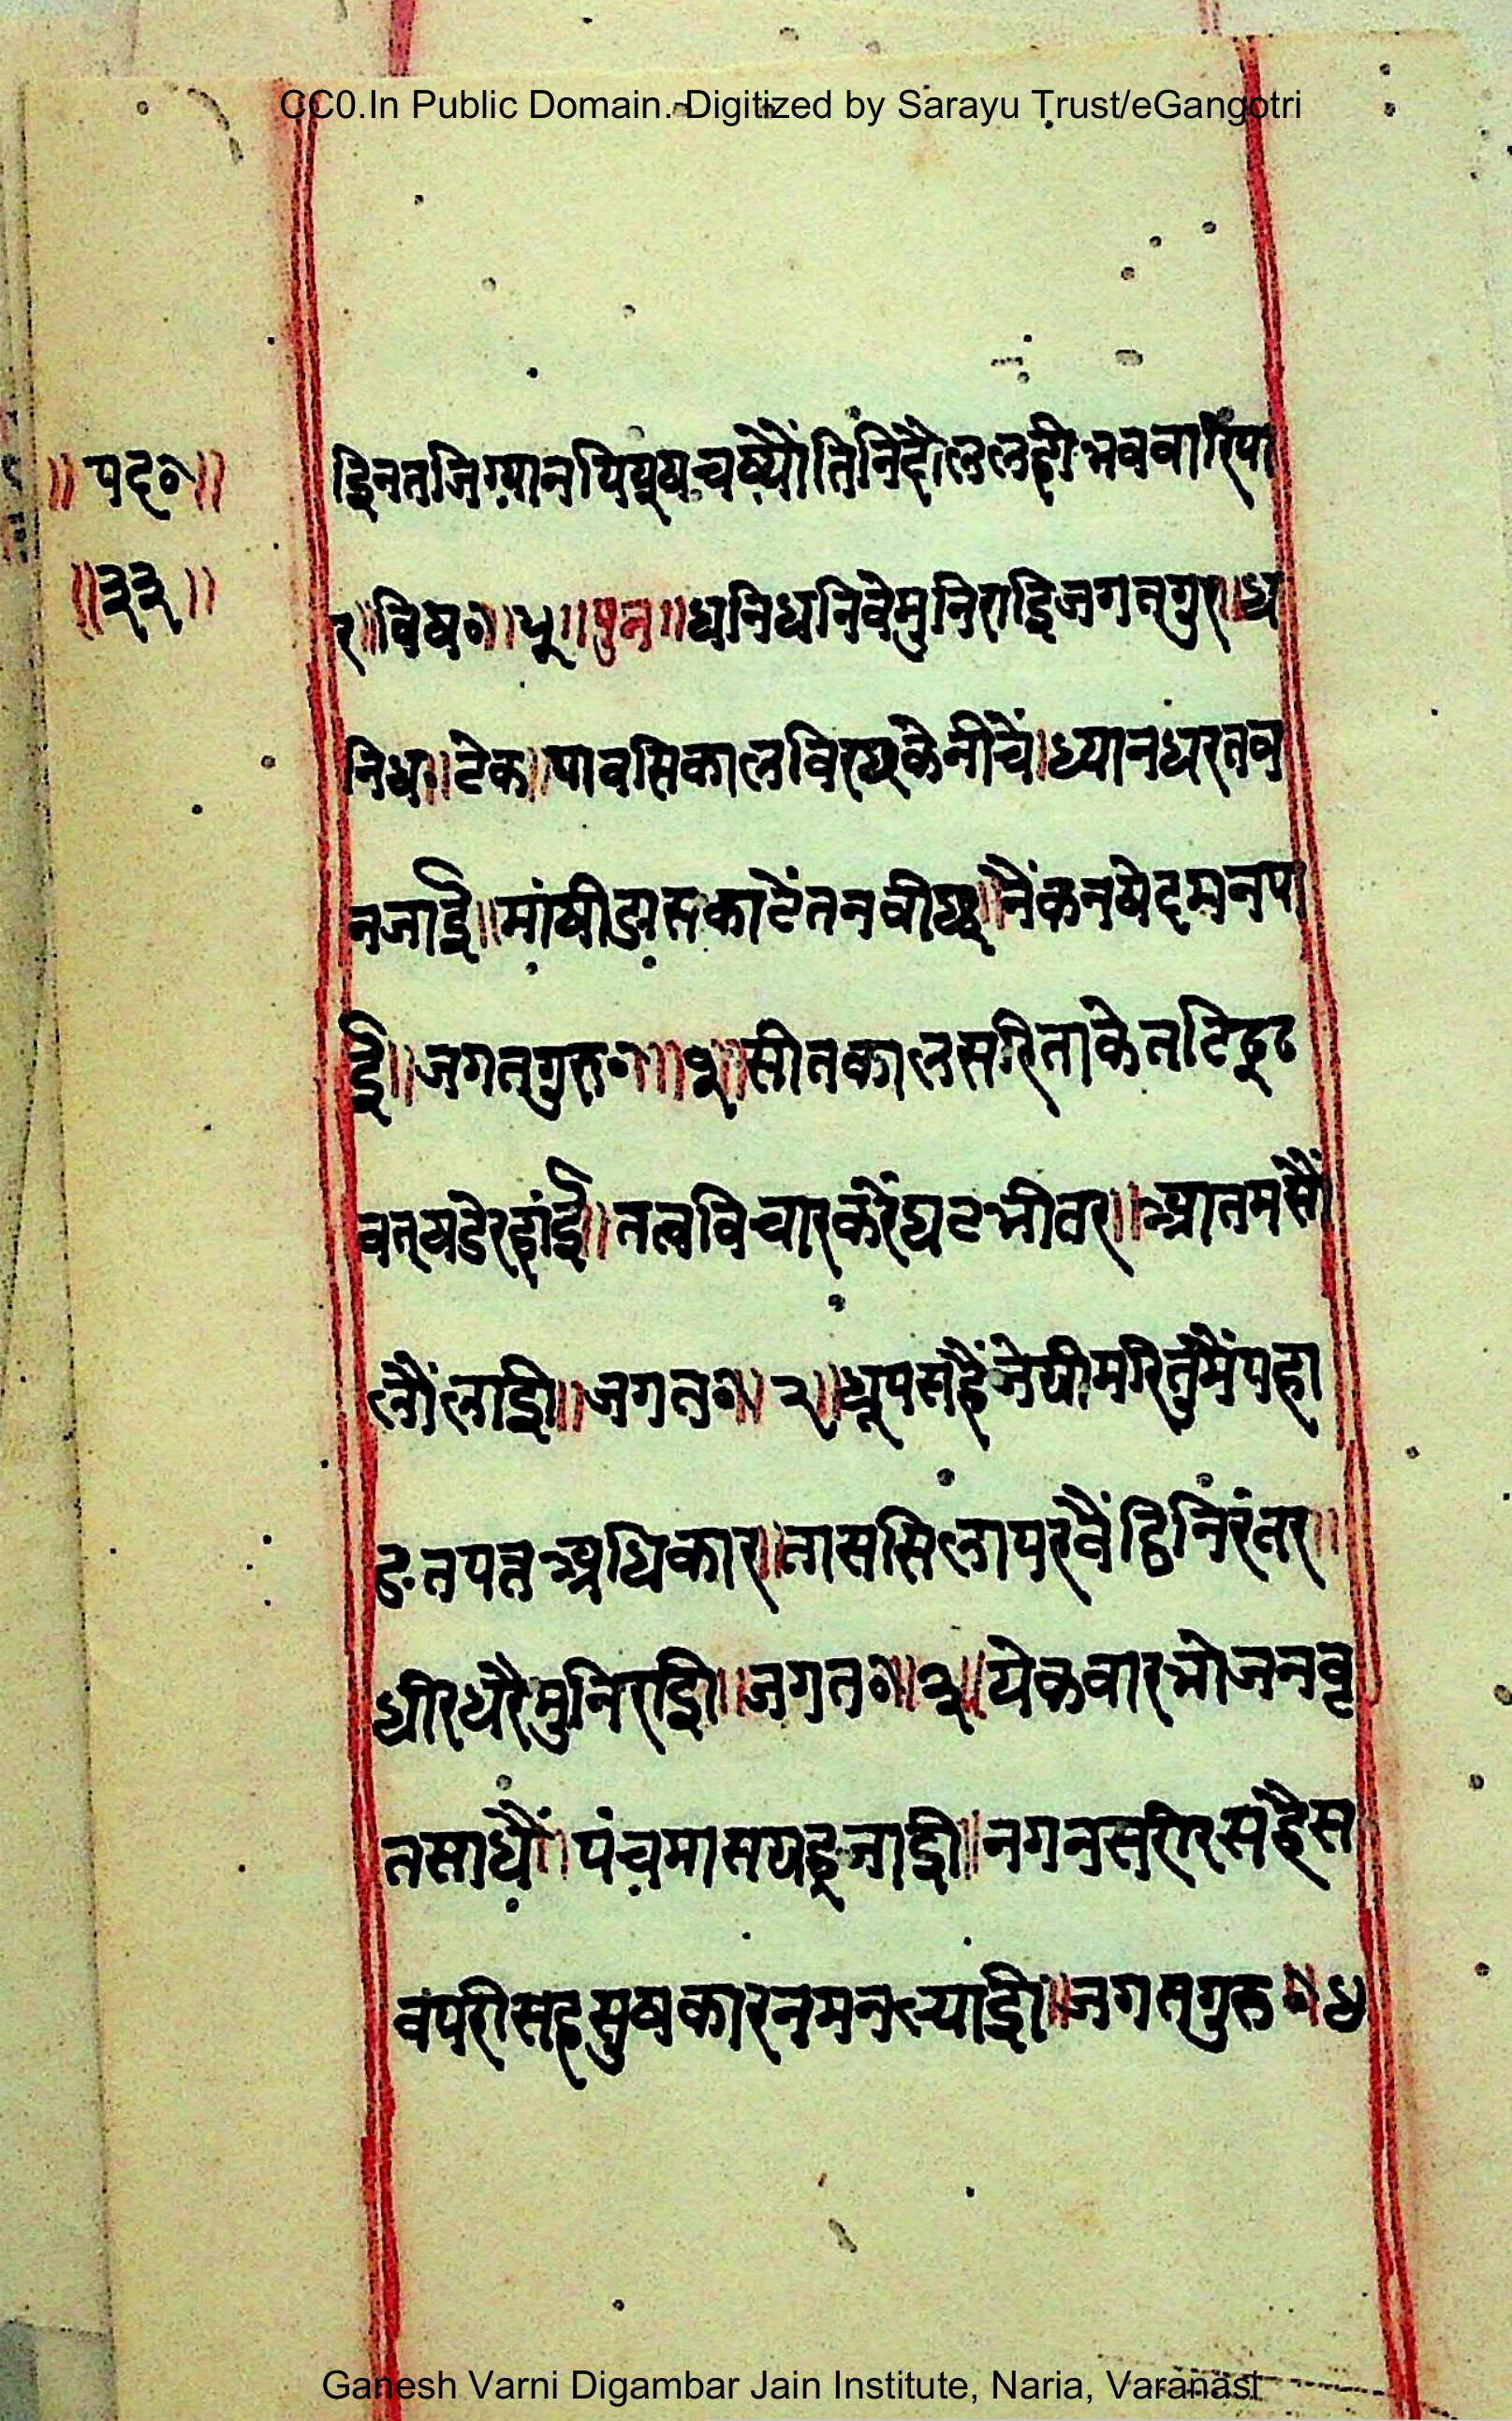 CC0.In Public Domain. Digitized by Sarayu Trust/eGangotri
॥पद०॥
॥३३॥
द्दिनतजिग्यानपियूषचष्यौंतिनिहौलुलहीभववारिपा
र॥विष०॥५॥पुन॥धनिधनिवेमुनिराइजगत्गुर॥ध
निध०॥टेक॥पावसिकालविरषकेनीचें।ध्यानधरतव
नजाई॥मांषीडासकाटेंतनवीछू॥नैंकनषेदमनपा
ई॥जगत्गुरु०॥१॥सीतकालसरिताकेतटिदृढ
वत्षडेरहांई॥तत्वविचारकरेंघटभीतर॥आतमसौं
लौंलाई॥जगत०॥२॥धूपसहैंजेग्रीमरितुमैंपहा
डतपतअधिकार॥तासिसिलापरवैंठिनिरंतर॥
धीरधरैमुनिराई॥जगत०॥३॥येकवारभोजनवृ
तसाधैं॥पंचमासषट्जाही॥नगनसरीरसहैस
वंपरीसहसुषकारनमनल्याई॥जगत्गुरु०॥४
Ganesh Varni Digambar Jain Institute, Naria, Varanasi